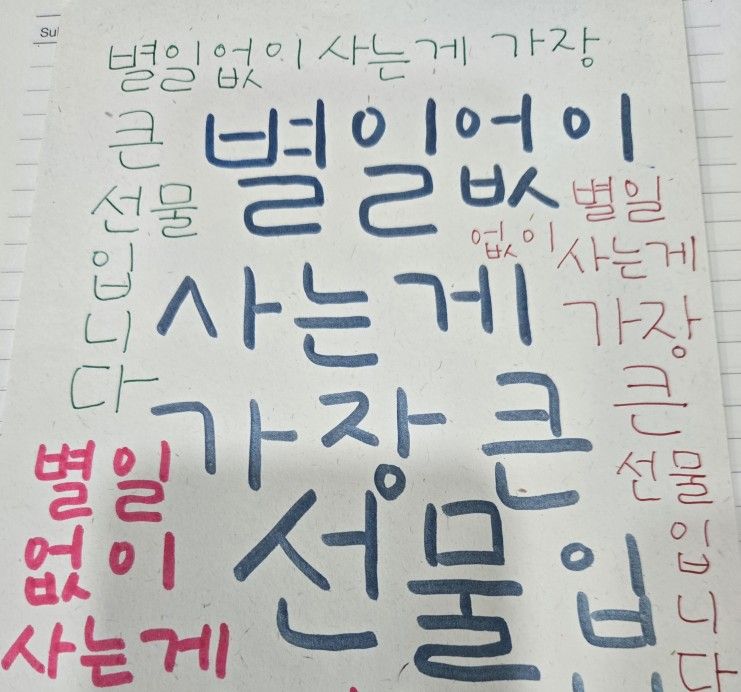 Su
별일없이 사는게 가장
큰
선물
입
니
다
별일없이
사는게
가장 큰
선물입
별일
없이
사는게
가장
큰
선물
입
니
다
별일
없이
사는게